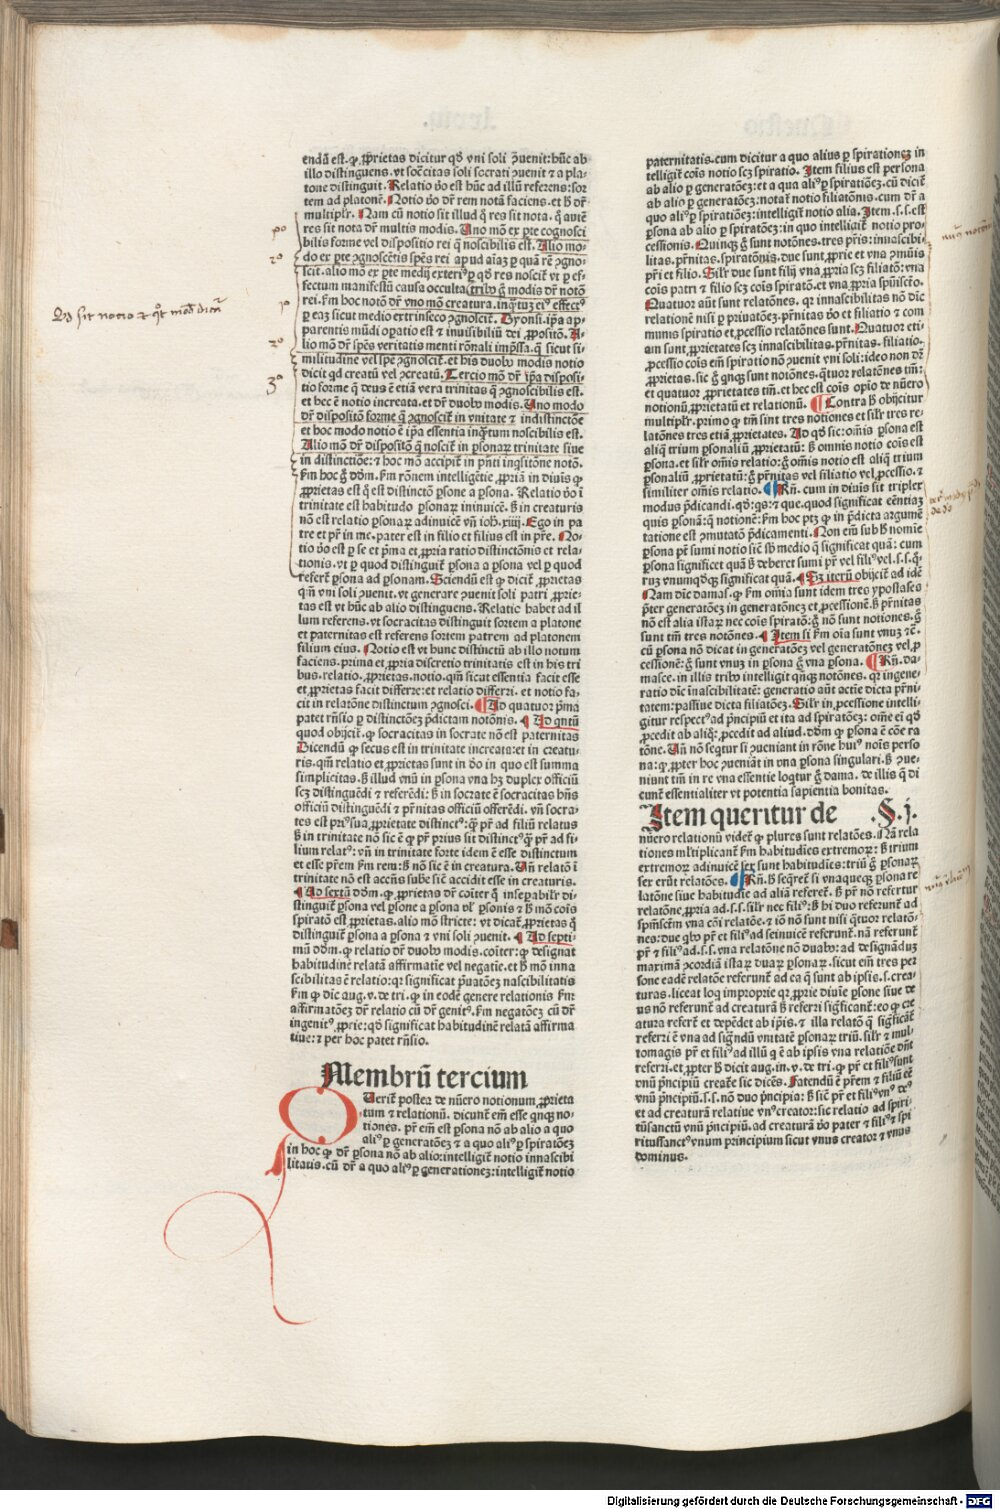 endū est. ꝙ ꝓprietas dicitur qđ vni soli ꝯuenit: hūc ab
illo distinguens. vt socͣcitas soli socrati ꝯuenit ⁊ a pla-
tone distinguit. Relatio ꝟo est hūc ad illū referens: sor
tem ad platonē. Notio ꝟo dr̄ rem notā faciens. et ħ dr̄
multiplr̄. Nam cū notio sit illud ꝗ res sit nota. ꝗ autē
res sit nota dr̄ multis modis. Uno mō ex ꝑte cognosci
bilis forme vel dispositio rei ꝗ noscibilis est. Alio mo-
do ex ꝑte ꝯgnoscētis spēs rei apud aīaꝫ ꝑ quā rē ꝯgno-
scit. alio mo ex ꝑte medij exteriꝰ ꝑ qđ res noscit̄ vt ꝑ ef-
fectum manifestū causa occulta tribꝰ ꝗ̄ modis dr̄ notō
rei. k̄m hoc notō dr̄ vno mō creatura. inꝗ̄tuꝫ eiꝰ effectꝰ
ꝑ eaꝫ sicut medio extrinseco ꝯgnoscit̄. Dyonsi. ip̄a ap-
parentis mūdi oꝑatio est ⁊ inuisibiliū dei ꝓpositō. A-
lio mō dr̄ spēs veritatis menti rōnali imp̄ssa. ꝗ̄ sicut si-
militudine vel spe ꝯgnoscit̄. et his duobꝰ modis notio
dicit̄ qd creatū vel ꝯcreatū. Tercio mō dr̄ ip̄a disposi-
tio forme qua deus ē etiā vera trinitas ꝗ ꝯgnoscibilis est.
et hec ē notio increata. et dr̄ duobꝰ modis. Uno modo
dr̄ dispositō forme ꝗ ꝯgnoscit̄ in vnitate ⁊ indistinctōe
et hoc modo notio ē ip̄a essentia inꝗ̄tum noscibilis est.
Alio mō dr̄ dispositō ꝗ noscit̄ in ꝑsonaꝝ trinitate siue
in distinctiōe: ⁊ hoc mō accipit̄ in p̄nti inꝗsitōne notō.
k̄m hoc ꝗ̄ ddm. k̄m rōnem intelligētie ꝓpriā in diuīs ꝙ
ꝓprietas est ꝗ est distinctō ꝑsone a ꝑsona. Relatio ꝟo ī
trinitate est habitudo ꝑsonaꝝ ininuicē. ß in creaturis
nō est relatio ꝑsonaꝝ adinuicē vn̄ ioh̄. xiiij. Ego in pa
tre et pr̄ in me. pater est in filio et filius est in pr̄e. No-
tio ꝟo est vt ꝑ se et p̄ma et ꝓpria ratio distinctōnis et rela-
tionis. vt ꝑ quod distinguit̄ ꝑsona a ꝑsona vel ꝑ quod
refert̄ ꝑsona ad ꝑsonam. Sciendū est ꝙ dicit̄ ꝓprietas
qm̄ vni soli ꝯuenit. vt generare ꝯuenit soli patri ꝓprie-
tas est vt hūc ab alio distinguens. Relatio habet ad il
lum referens. vt socracitas distinguit sortem a platone
et paternitas est referens sortem patrem ad platonem
filium eius. Notio est vt hunc distinctū ab illo notum
faciens. prima et ꝓpria discretio trinitatis est in his tri
bus. relatio. ꝓprietas. notio. qm̄ sicut essentia facit esse
et ꝓprietas facit differre: et relatio differri. et notio fa-
cit in relatōne distinctum ꝯgnosci. Ad quatuor p̄ma
patet rn̄sio ꝑ distinctōeꝫ p̄dictam notōnis. Ad qntū
quod obijcit̄. ꝙ socracitas in socrate nō est paternitas
Dicendū ꝙ secus est in trinitate increata: et in creatu-
ris. qm̄ relatio et ꝓprietas sunt in deo in quo est summa
simplicitas. ß illud vnū in ꝑsona vna hꝫ duplex officiū
scꝫ distinguēdi ⁊ referēdi: ß in socrate ē socracitas hn̄s
officiū distinguēdi ⁊ pr̄nitas officiū offerēdi. vn̄ socra-
tes est priꝰ sua ꝓprietate distinctꝰ: ꝗ̄ pr̄ ad filiū relatus
ß in trinitate nō sic ē ꝙ pr̄ prius sit distinctꝰ ꝗ̄ pr̄ ad fi-
lium relatꝰ: vn̄ in trinitate forte idem ē esse distinctum
et esse pr̄em k̄m rem: ß nō sic ē in creatura. Un̄ relatō ī
trinitate nō est accn̄s subē sic̄ accidit esse in creaturis.
Ad sextū ddm. ꝙ ꝓprietas dr̄ cōiter ꝗ̄ insepabilr̄ di-
stinguit̄ ꝑsona vel ꝑsone a ꝑsona vl̄ ꝑsonis ⁊ ß mō cōis
spiratō est ꝓprietas. alio mō stricte: vt dicat̄ ꝓprietas ꝗ̄
distinguit̄ ꝑsona a ꝑsona ⁊ vni soli ꝯuenit. Ad septi-
mū ddm. ꝙ relatio dr̄ duobꝰ modis. cōiter: ꝙ designat
habitudinē relatā affirmatiue vel negatie. et ß mō inna
scibilitas ē relatio: qꝛ significat p̄uatōeꝫ nascibilitatis
k̄m ꝙ dic̄ aug. v. de tri. ꝙ in eodē genere relationis k̄m
affirmatōeꝫ dr̄ relatio cū dr̄ genitꝰ. k̄m negatōeꝫ cū dr̄
ingenitꝰ ꝓprie: qđ significat habitudinē relatā affirma
tiue: ⁊ per hoc patet rn̄sio.
Membrū tercium
Querit̄ postea de nūero notionum ꝓprieta
tum ⁊ relationū. dicunt̄ em̄ esse qnqꝫ no-
tiones. pr̄ em̄ est ꝑsona nō ab alio a quo
aliꝰ ꝑ generatōeꝫ ⁊ a quo aliꝰ ꝑ spiratōeꝫ
in hoc ꝙ dr̄ ꝑsona nō ab alio: intelligit̄ notio innascibi
litatis. cū dr̄ a quo aliꝰ ꝑ generationeꝫ: intelligit̄ notio
paternitatis. cum dicitur a quo alius ꝑ spirationeꝫ in
telligit̄ cōis notio scꝫ spiratio. Item filius est persona
ab alio ꝑ generatōeꝫ: et a qua aliꝰ ꝑ spiratiōeꝫ. cū dicit̄
ab alio ꝑ generatōeꝫ: notat̄ notio filiatōnis. cum dr̄ a
quo aliꝰ ꝑ spiratiōeꝫ: intelligit̄ notio alia. Item .s.s. est
ꝑsona ab alio ꝑ spiratōeꝫ: in quo intelligit̄ notio pro-
cessionis. Quinqꝫ ꝗ̄ sunt notōnes. tres pr̄is: innascibi
litas. pr̄nitas. spiratōnis. due sunt ꝓprie et vna ꝯmūis
pr̄i et filio. Silr̄ due sunt filij vna ꝓpria scꝫ filiatō: vna
cōis patri ⁊ filio scꝫ cōis spiratō. et vna ꝓpria spūiscō.
Quatuor aūt sunt relatōnes. qꝛ innascibilitas nō dic̄
relationē nisi ꝑ priuatōeꝫ. pr̄nitas ꝟo et filiatio ⁊ com
munis spiratio et ꝓcessio relatōnes sunt. Quatuor eti-
am sunt ꝓprietates scꝫ innascibilitas. pr̄nitas. filiatio.
ꝓcessio cōis em̄ spiratio nō ꝯuenit vni soli: ideo non dr̄
ꝓprietas. sic ꝗ̄ qnqꝫ sunt notōnes. qtuor relatōnes tm̄:
et quatuor ꝓprietates tm̄. et hec est cōis opio de nūero
notionū ꝓprietatū et relationū. Contra ß obijcitur
multiplr̄. primo ꝙ tm̄ sint tres notiones et silr̄ tres re-
latōnes tres etiā ꝓprietates. Ad qđ sic: om̄is ꝑsona est
aliꝗ trium ꝑsonaliū ꝓprietatū: ß omnis notio cōis est
ꝑsona. et silr̄ om̄is relatio: ꝗ̄ om̄is notio est aliꝗ trium
ꝑsonaliū ꝓprietatū: ꝗ̄ pr̄nitas vel filiatio vel ꝓcessio. ⁊
similiter om̄is relatio. Rn̄. cum in diuīs sit triplex
modus p̄dicandi. qđ: ꝗs: ⁊ que. quod significat eēntiaꝫ
quis ꝑsonā: ꝗ̄ notionē: k̄m hoc ptꝫ ꝙ in p̄dicta argumē
tatione est ꝯmutatō p̄dicamenti. Non em̄ sub ß nomie
ꝑsona pt̄ sumi notio sic̄ sb medio ꝗ significat quā: cum
ꝑsona significet quā ß deberet sumi pr̄ vel filiꝰ vel .s.s. ꝗ-
ruꝫ vnumqđqꝫ significat quā. Sꝫ iterū obijcit̄ ad idē
Nam dic̄ damas. ꝙ k̄m om̄ia sunt idem tres ypostases
p̄ter generatōeꝫ in generatōneꝫ et ꝓcessionē. ß pr̄nitas
nō est alia istaꝝ nec cōis spiratō: ꝗ̄ nō sunt notiones. ꝗ̄
sunt tm̄ tres notōnes. Item si k̄m oīa sunt vnuꝫ ⁊c̄.
cū ꝑsona nō dicat in generatōeꝫ vel generatōneꝫ vel ꝓ
cessionē: ꝗ̄ sunt vnuꝫ in ꝑsona ꝗ̄ vna ꝑsona. Rn̄. da-
masce. in illis tribꝰ intelligit qnqꝫ notōnes. qꝛ ingene-
ratio dic̄ inascibilitatē: generatio aūt actiue dicta pr̄ni-
tatem: passiue dicta filiatōeꝫ. Silr̄ in ꝓcessione intelli-
gitur respectꝰ ad p̄ncipiū et ita ad spiratōeꝫ: om̄e em̄ qđ
ꝓcedit ab aliqͦ: ꝓcedit ad aliud. ddm̄ ꝙ ꝑsona ē cōe ra
tōne. Un̄ nō seqtur si ꝯueniant in rōne huiꝰ noīs perso
na: ꝙ ꝓpter hoc ꝯueniāt in vna ꝑsona singulari. ß ꝯue-
niunt tm̄ in re vna essentie loqtur ꝗ̄ dama. de illis ꝗ di
cunt̄ essentialiter vt potentia sapientia bonitas.
Item queritur de .§. j.
nūero relationū videt̄ ꝙ plures sunt relatōes. Nā rela
tiones ml̄tiplicant̄ k̄m habitudīes extremoꝝ: ß trium
extremoꝝ adinuicē sex sunt habitudīes: triū ꝗ̄ ꝑsonaꝝ
sex erūt relatōes. Rn̄. ß seqret̄ si vnaqueqꝫ ꝑsona re
latōne siue habitudie ad aliā referet̄. ß pr̄ nō refertur
relatōne ꝓpria ad .s.s. silr̄ nec filiꝰ: ß hi duo referunt̄ ad
spm̄sctm̄ vna cōi relatōe. ⁊ iō nō sunt nisi qtuor relatō-
nes: due qbꝰ pr̄ et filiꝰ ad seinuicē referunt̄. nā referunt̄
pr̄ ⁊ filiꝰ ad .s.s. vna relatōne nō duabꝰ: ad designāduꝫ
maximā ꝯcordiā istaꝝ duaꝝ ꝑsonaꝝ. sicut em̄ tres per
sone eadē relatōe referunt̄ ad ea ꝗ sunt ab ipsis .s. crea-
turas. liceat loq improprie qꝛ ꝓprie diuīe ꝑsone siue de
us nō referunt̄ ad creaturā ß referri significant̄: eo ꝙ cre
atura refert̄ et depēdet ab ip̄is. ⁊ illa relatō ꝗ significat̄
referri ē vna ad signdū vnitatē ꝑsonaꝝ trium. silr̄ ⁊ mul-
tomagis pr̄ et filiꝰ ad illū ꝗ ē ab ipsis vna relatiōe dn̄t
referri. et ꝓpter ß dicit aug. in .v. de tri. ꝙ pr̄ et filiꝰ sunt
vnū p̄ncipiū creat̄e sic̄ dic̄es. Fatendū ē pr̄em ⁊ filiū eē
vnū p̄ncipiū .s.s. nō duo p̄ncipia: ß sic̄ pr̄ et filiꝰ vnꝰ deꝰ
et ad creaturā relatiue vnꝰ creator: sic relatio ad spiri-
tūsanctū vnū p̄ncipiū. ad creaturā ꝟo pater ⁊ filiꝰ ⁊ spi
ritussanctꝰ vnum principium sicut vnus creator ⁊ vnus
dominus.
pͦ
2ͦ
3ͦ
Digitalisierung gefördert durch die Deutsche Forschungsgemeinschaft - DFG